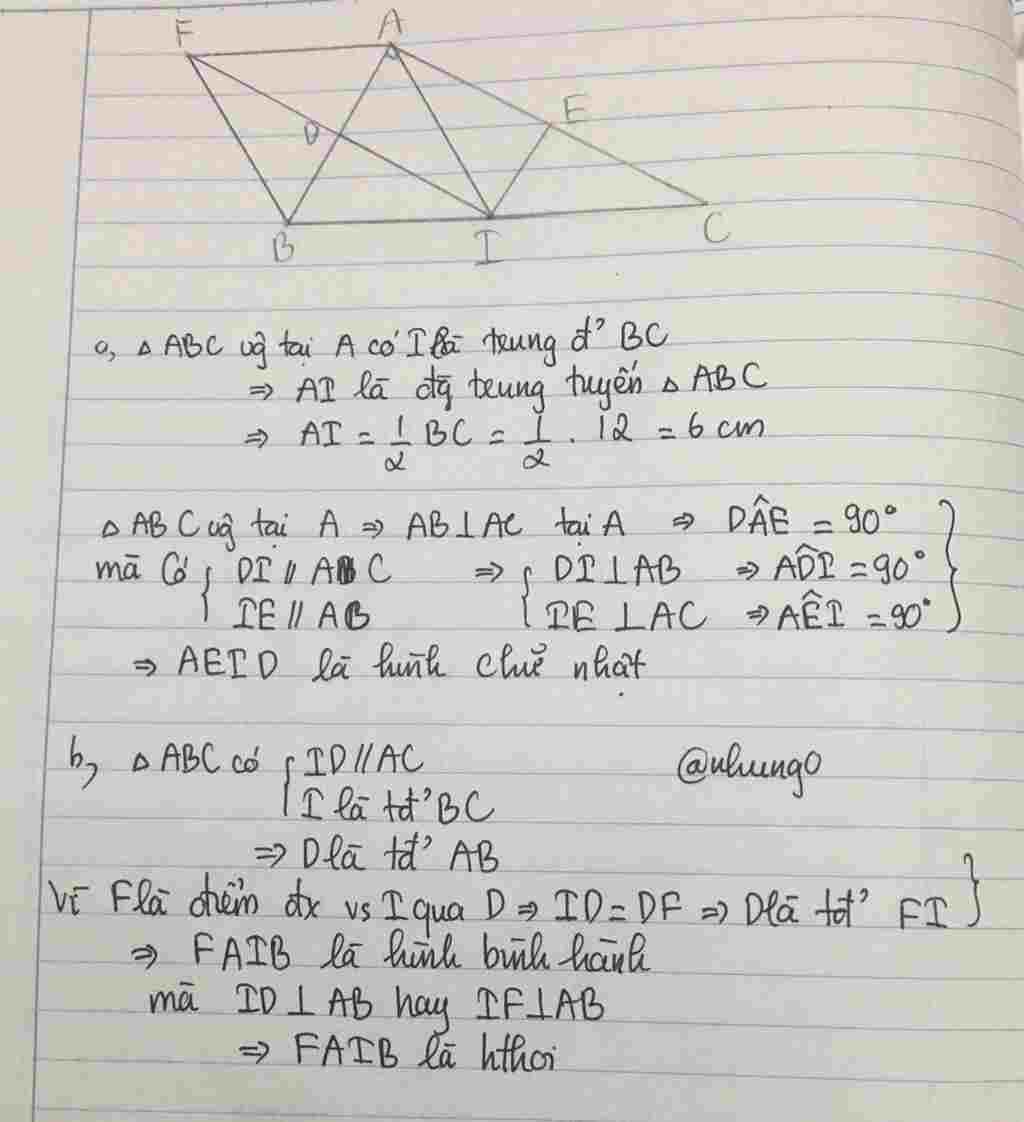 F A
E
D
B I C
a, △ ABC vg tại A có I là trung đ' BC
⇒ AI là đg trung tuyến △ ABC
⇒ AI = 1/2 BC = 1/2 . 12 = 6 cm
△ ABC vg tại A ⇒ AB ⊥ AC tại A ⇒ DÂE = 90° }
mà Có { DI // AC ⇒ { DI ⊥ AB ⇒ AD̂I = 90°
IE // AB IE ⊥ AC ⇒ AÊI = 90°
⇒ AEID là hình chữ nhật
b, △ ABC có { ID // AC @nhung0
I là tđ' BC
⇒ D là tđ' AB
Vì F là điểm đx vs I qua D ⇒ ID = DF ⇒ D là tđ' FI }
⇒ FAIB là hình bình hành
mà ID ⊥ AB hay IF ⊥ AB
⇒ FAIB là hthoi